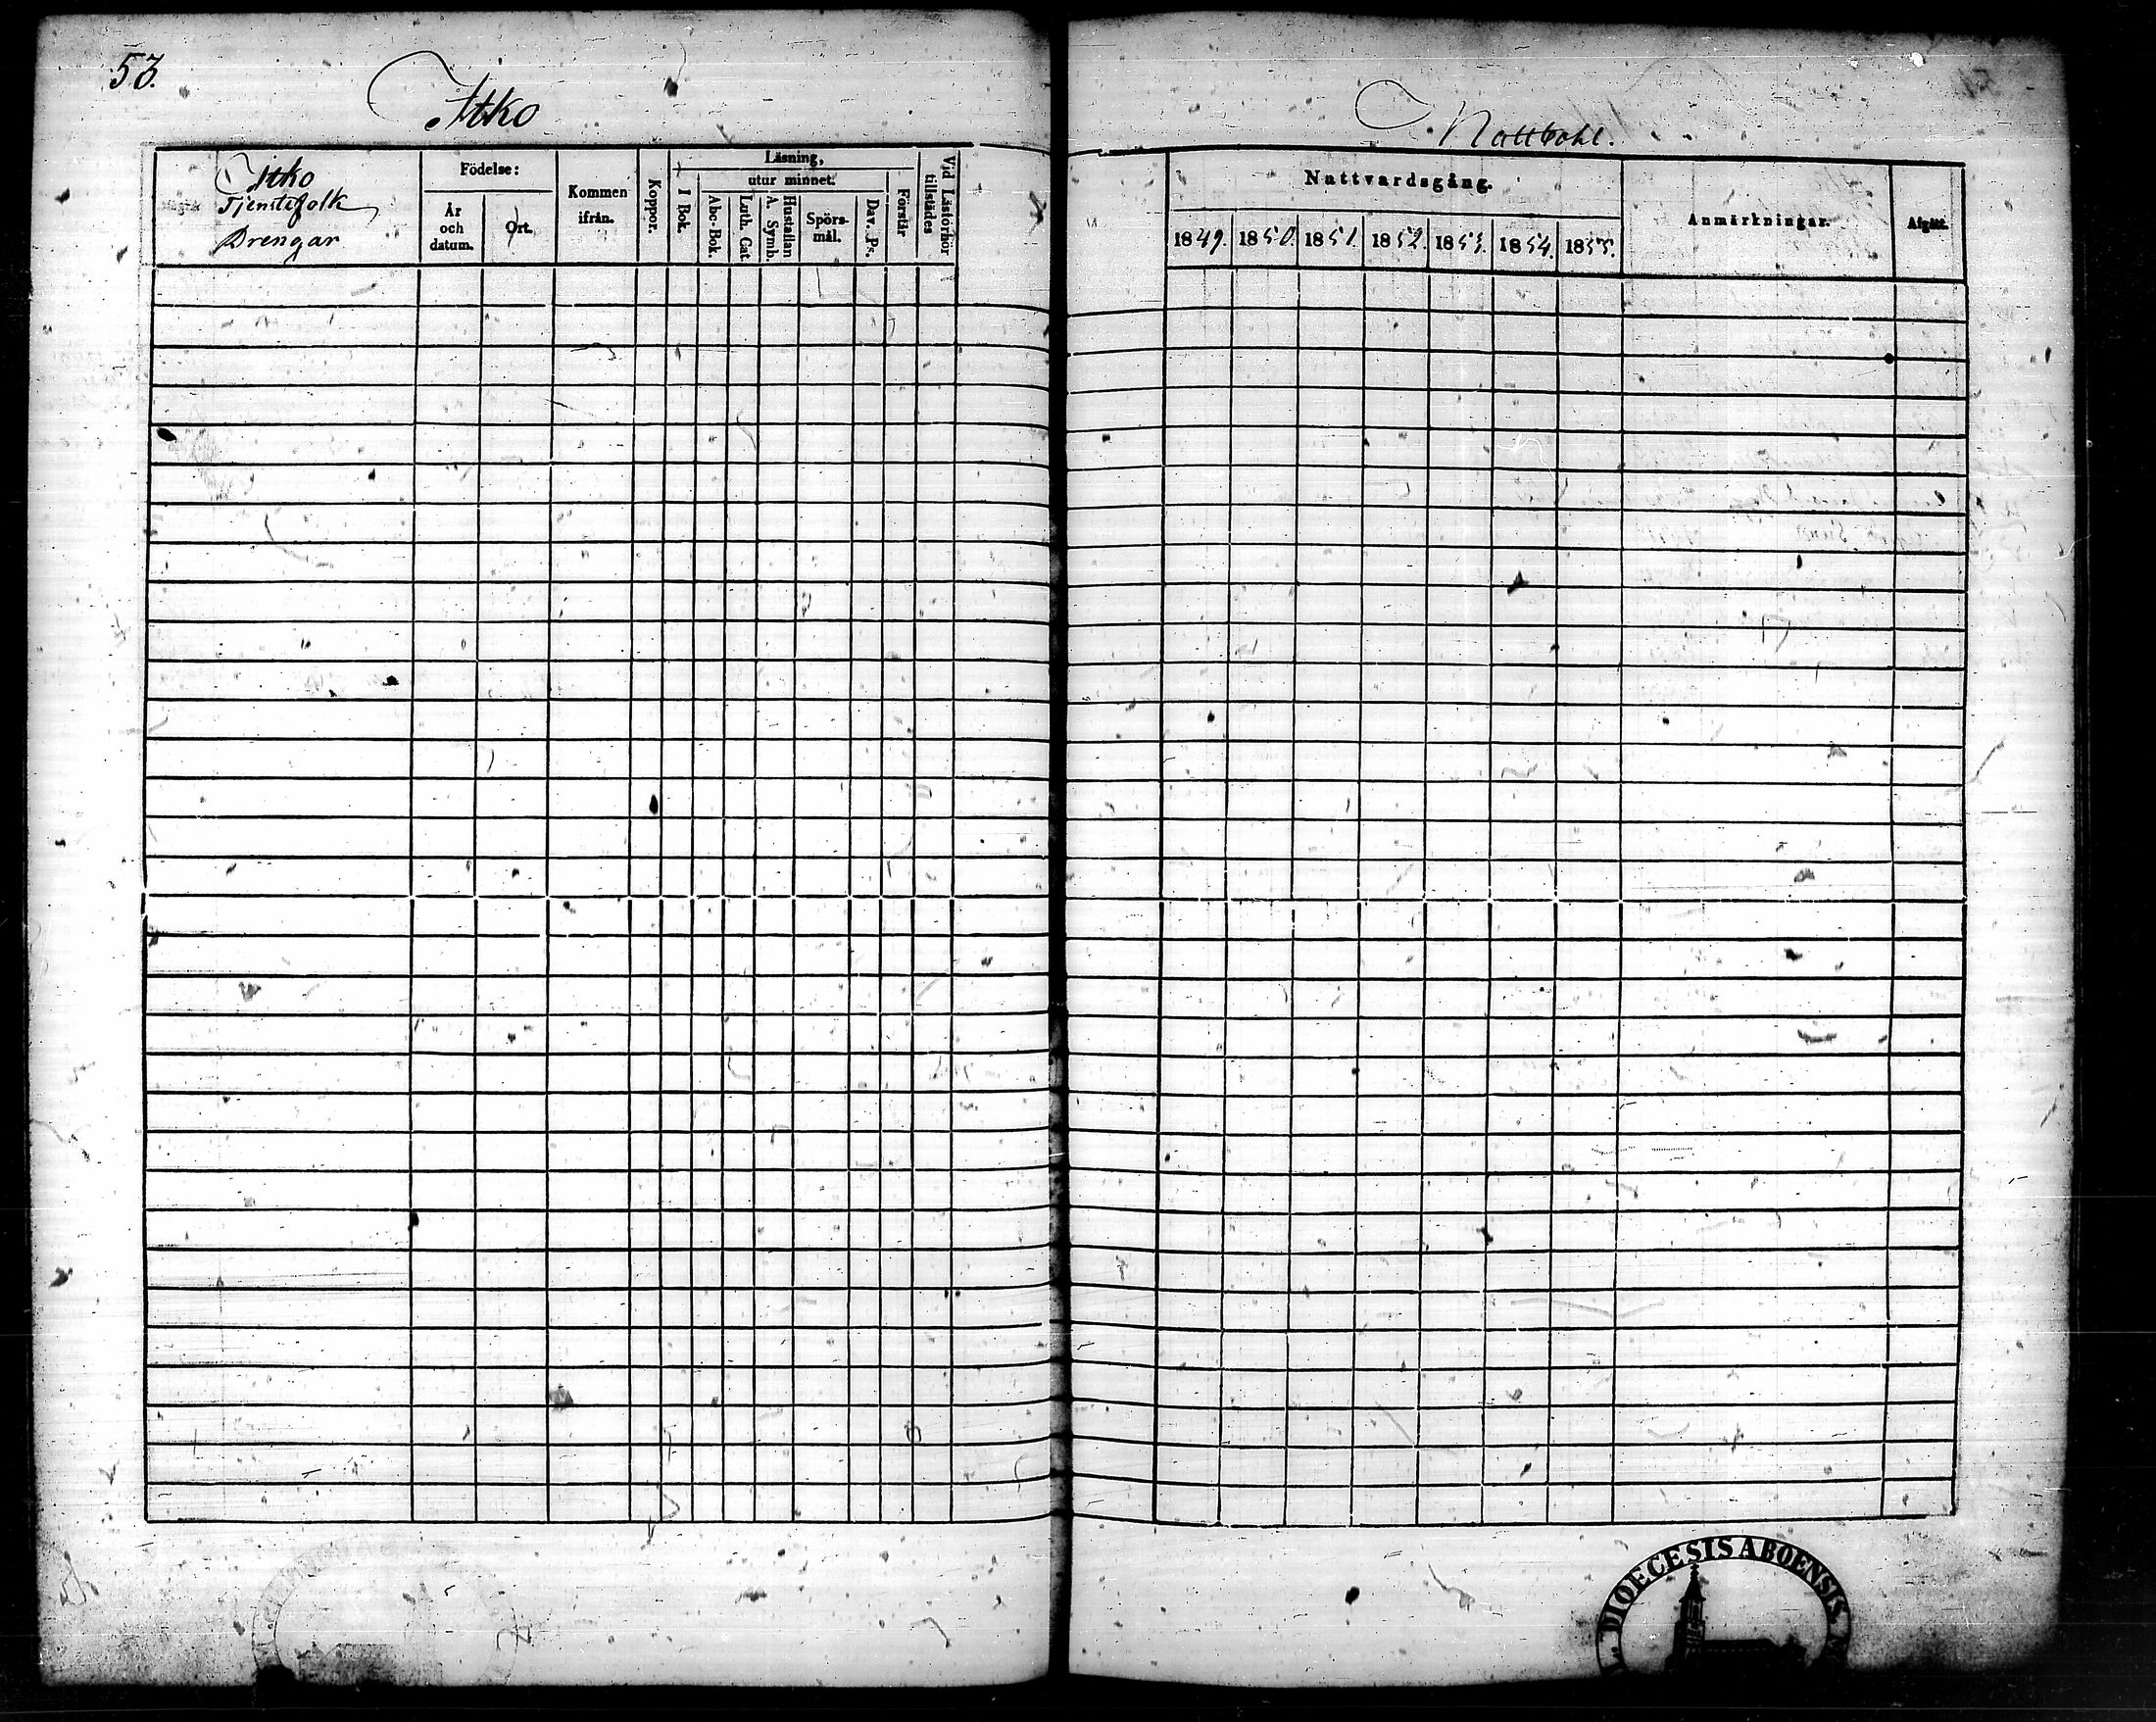 53.
Itko
Nattbohl.
Itko
Tjenstefolk
Drengar
Födelse:
År
och
datum.
Ort.
Kommen
ifrån.
Koppor.
Läsning,
I Bok.
utur minnet.
Abc-Bok.
Luth. Cat.
Hustaflan
A. Symb.
Spörs-
mål.
Dav. Ps.
Förstår
Vid Läsförhör
tillstädes
Nattvardsgång.
1849.
1850.
1851.
1852.
1853.
1854.
1855.
Anmärkningar.
Afgått.
DIOECESIS ABOENSIS